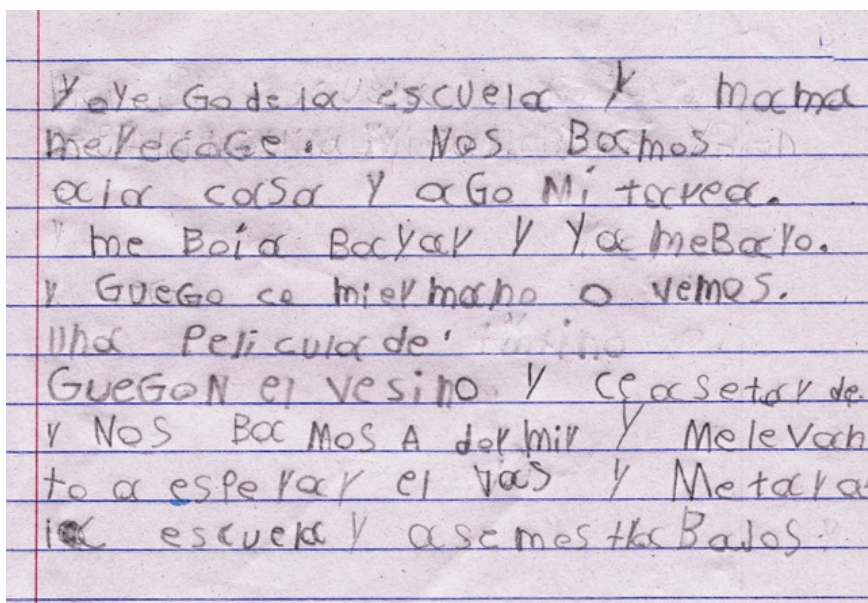 Yo ye Go de la escuela y mama
me recoGe. Nos Bamos
a la casa y aGo Mi tarea.
me Boi a Bayar y ya me Bayo.
y GueGo co mi ermano o vemos.
una Pelicula de
GueGoN el vesino y ce ase tarde.
y Nos Ba Mos A dormir y Me levan
to a esperar el vas y Me to a
la escuela y asemos traBajos.